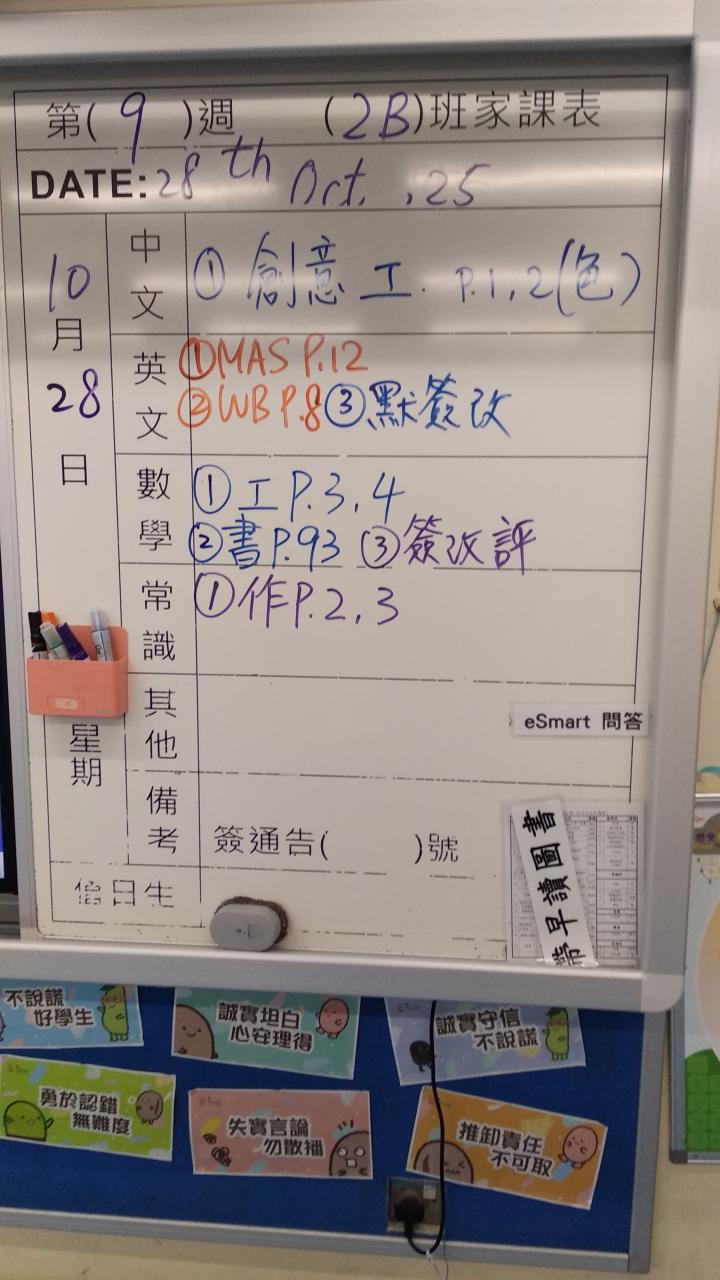 第( 9 )週 (2B)班家課表
DATE: 28th Oct. , 25
10
月
28
日
星期
中文
① 創意工. p.1, 2(色)
英文
①MAS P.12
②WB P.8 ③默簽改
數學
①工P.3, 4
②書P.93 ③簽改評
常識
①作P.2, 3
其他
eSmart 問答
備考
簽通告( )號
值日生
帶早讀圖書
不說謊
好學生
誠實坦白
心安理得
誠實守信
不說謊
勇於認錯
無難度
失實言論
勿散播
推卸責任
不可取